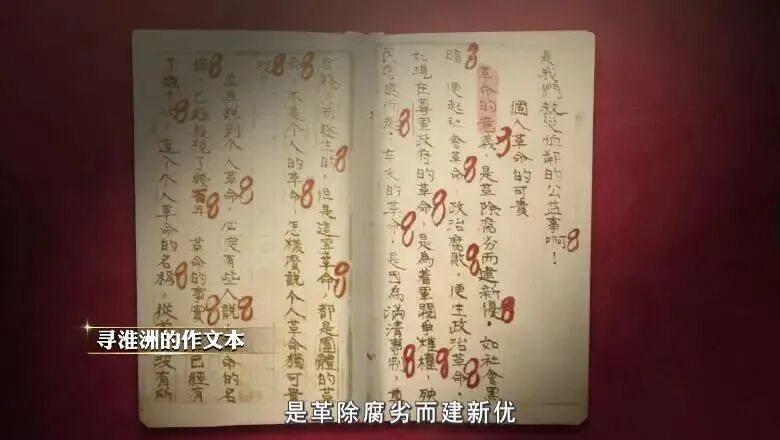 是我們救災恤鄰的公益事啊！
個人革命的可貴
革命的意義，是革除腐劣而建新優。如社會黑
暗，便起社會革命，政治腐敗，便生政治革命。
如現在政府的革命，是為着軍閥爭權，殃
民而起。辛亥的革命，是因為滿清專制，
而發生的，但是這宗革命，都是團體的革
命，不是个人的革命，怎樣麼說个人革命獨可貴
呢？
並且說到个人革命，必定有些人說，革命的名
已經發現了幾百年，革命的事實，已經有
了幾十，這个个人革命的名稱，從沒有所
寻淮洲的作文本
是革除腐劣而建新优